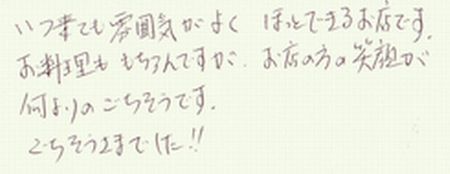 いつ来ても雰囲気がよく ほっとできるお店です。
お料理も もちろんですが、お店の方の笑顔が
何よりのごちそうです。
ごちそうさまでした!!